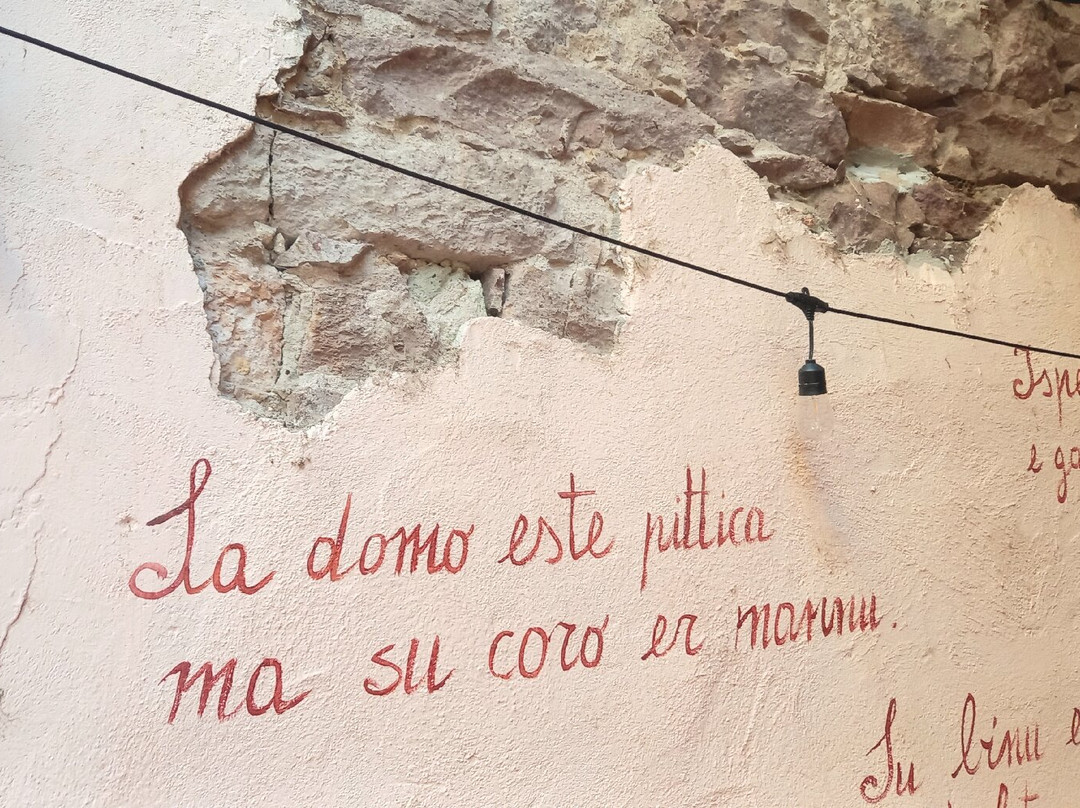 Sa domo este pittica
ma su coro er mannu.
Ispe
e
Su binu